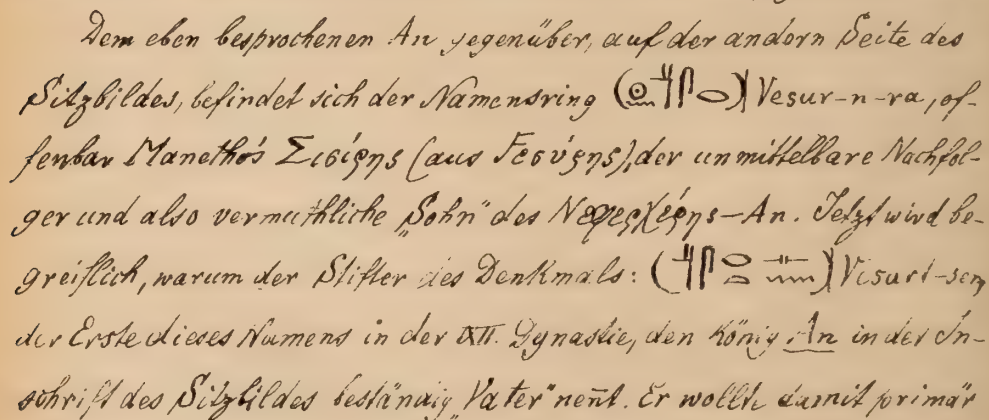 Dem eben besprochenen An gegenüber, auf der andern Seite des
Sitzbildes, befindet sich der Namensring Vesur-n-ra, of-
fenbar Manetho's Σισίρης (aus Ϝεσύρης), der unmittelbare Nachfol-
ger und also vermuthliche „Sohn" des Νεφερχέρης-An. Jetzt wird be-
greiflich, warum der Stifter des Denkmals: Visurt-sen
der Erste dieses Namens in der XII. Dynastie, den König An in der In-
schrift des Sitzbildes beständig „Vater" neñt. Er wollte damit primär